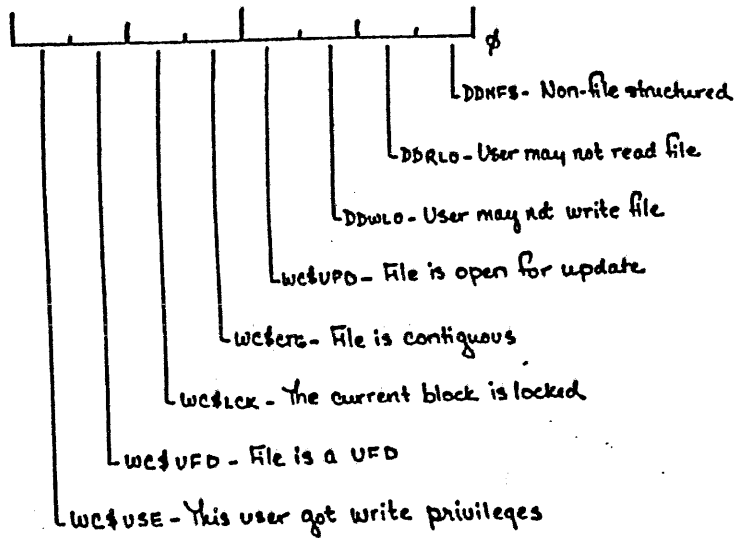 ø
DDNFS - Non-file structured
DDRLO - User may not read file
DDWLO - User may not write file
WC$UPD - File is open for update
WC$CTG - File is contiguous
WC$LCK - The current block is locked
WC$UFD - File is a UFD
WC$USE - This user got write privileges